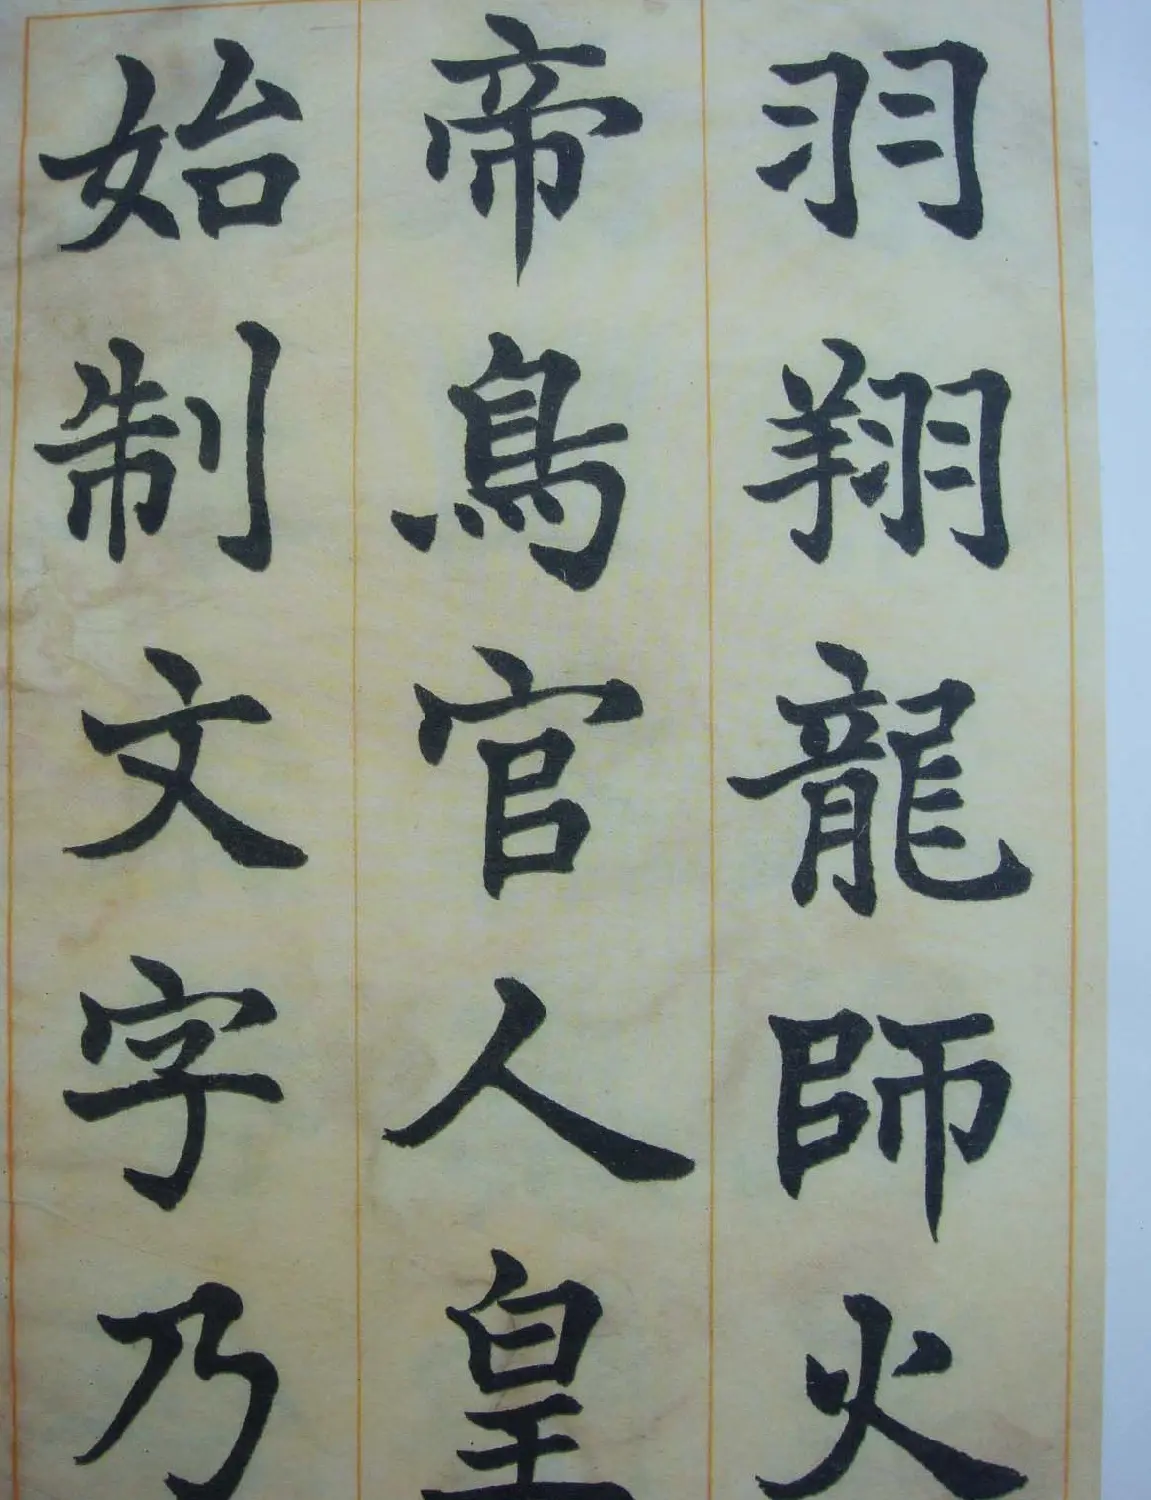 羽翔龍師火
帝鳥官人皇
始制文字乃